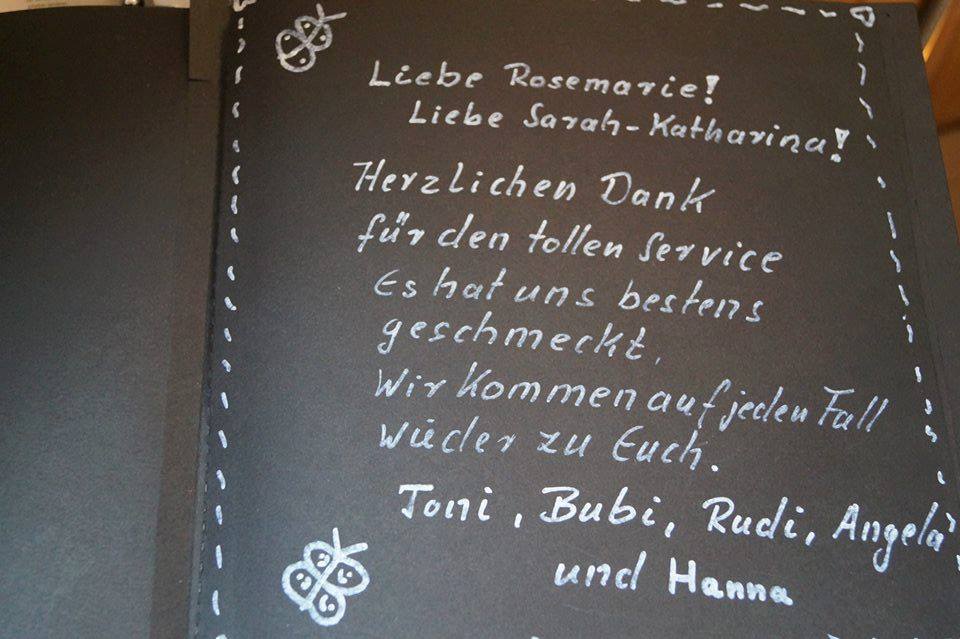 Liebe Rosemarie!
Liebe Sarah-Katharina!
Herzlichen Dank
für den tollen Service
Es hat uns bestens
geschmeckt,
Wir kommen auf jeden Fall
wieder zu Euch.
Toni, Bubi, Rudi, Angela
und Hanna